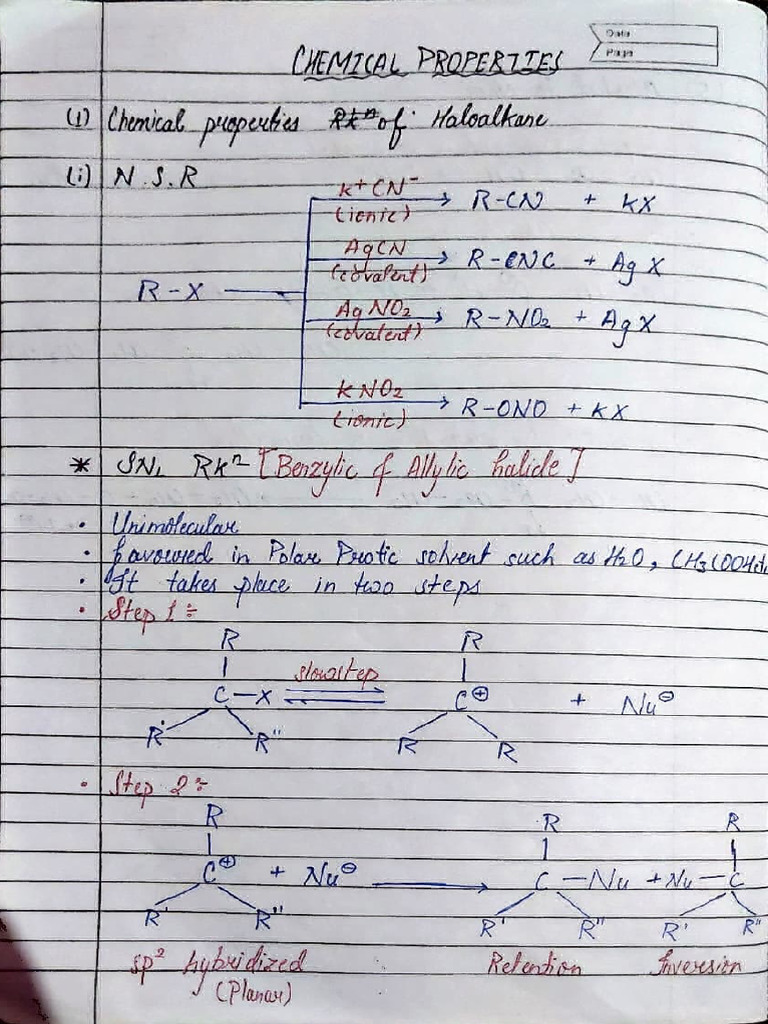 Date
Page
CHEMICAL PROPERTIES
(1) Chemical properties of Haloalkane
(i) N.S.R
K+CN- (ionic) → R-CN + KX
AgCN (covalent) → R-CNC + AgX
R-X
AgNO2 (covalent) → R-NO2 + AgX
KNO2 (ionic) → R-ONO + KX
* SN1 RKn [Benzylic & Allylic halide]
• Unimolecular
• favoured in Polar Protic solvent such as H2O, CH3COOH etc
• It takes place in two steps
• Step 1 :-
R R
slow step
C-X ⇌ C⊕ + Nu⊖
R' R" R R
• Step 2 :-
R R R
C⊕ + Nu⊖ → C-Nu + Nu-C
R' R" R' R" R' R"
sp2 hybridized Retention Inversion
(Planar)